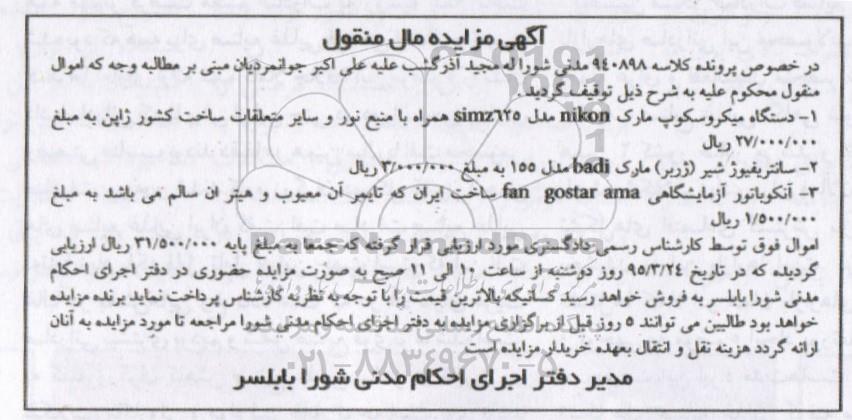 آگهی مزایده مال منقول
در خصوص پرونده کلاسه ۹۴۰۸۹۸ مدنی شورا له مجید آذر گشب علیه علی اکبر جوانمردیان مبنی بر مطالبه وجه که اموال
منقول محکوم علیه به شرح ذیل توقیف گردید.
۱- دستگاه میکروسکوپ مارک nikon مدل simz۶۲۵ همراه با منبع نور و سایر متعلقات ساخت کشور ژاپن به مبلغ
۲۷/۰۰۰/۰۰۰ ریال
۲- سانتریفیوژ شیر (ژربر) مارک badi مدل ۱۵۵ به مبلغ ۳/۰۰۰/۰۰۰ ریال
۳- آنکوباتور آزمایشگاهی fan gostar ama ساخت ایران که تایمر آن معیوب و هیتر آن سالم می باشد به مبلغ
۱/۵۰۰/۰۰۰ ریال
اموال فوق توسط کارشناس رسمی دادگستری مورد ارزیابی قرار گرفته که جمعا به مبلغ پایه ۳۱/۵۰۰/۰۰۰ ریال ارزیابی
گردیده که در تاریخ ۹۵/۳/۲۴ روز دوشنبه از ساعت ۱۰ الی ۱۱ صبح به صورت مزایده حضوری در دفتر اجرای احکام
مدنی شورا بابلسر به فروش خواهد رسید کسانیکه بالاترین قیمت را با توجه به نظریه کارشناس پرداخت نمایند برنده مزایده
خواهد بود طالبین می توانند ۵ روز قبل از برگزاری مزایده به دفتر اجرای احکام مدنی شورا مراجعه تا مورد مزایده به آنان
ارائه گردد هزینه نقل و انتقال بعهده خریدار مزایده است.
۰۲۱-۸۸۳۴۹۶۷۰-۵
مدیر دفتر اجرای احکام مدنی شورا بابلسر